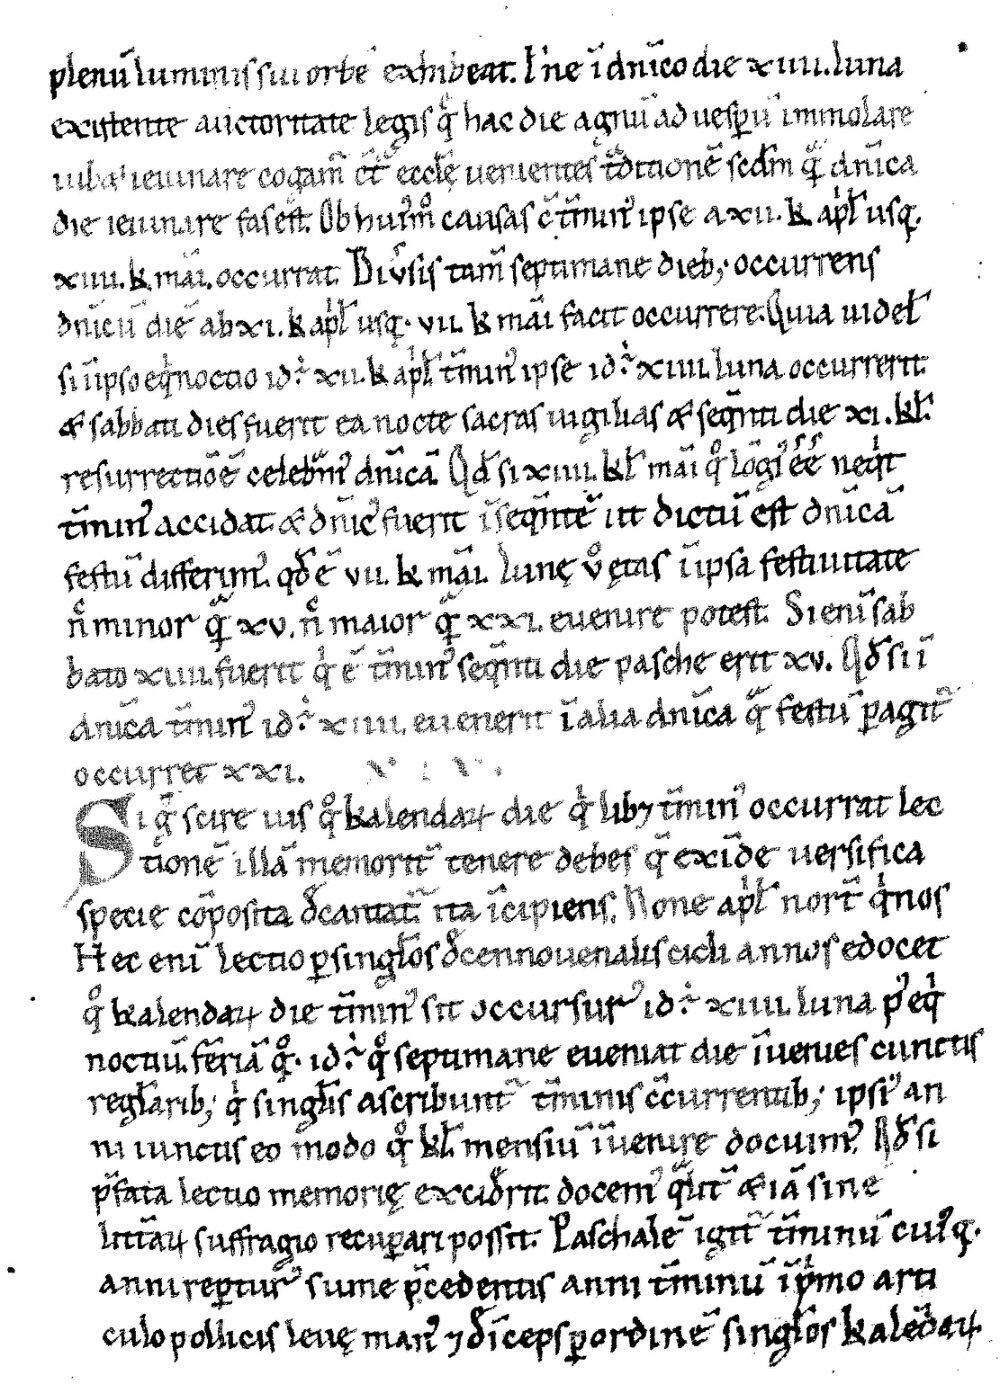 plenū luminis sui orbē exhibeat. I'ne ī dn̄ico die xiiii. luna
existente auctoritate legis q̄ hac die agnū ad uesp̄ū immolare
iubat ieiunare cogam̄ c̄t̄ eccl̄ę uenientes t̄ditionē scd̄m q̄ dn̄ica
die ieiunare fas est. Ob hui'm̊ causas c̄ t̄min' ipse a xii. k apl̄ usq.
xiiii. k mai. occurrat. Diūsis tam̄ septimane dieb; occurrens
dn̄icū diē ab xi. k apl̄ usq. vii. k mai facit occurrere. Quia uidel̄
si ī ipso eq̄noctio id.̄ xii. k apl̄ t̄min' ipse id.̄ xiiii. luna occurrerit
& sabbati dies fuerit ea nocte sacras uigilias & seq̄nti die xi. kl̄
resurrectiōē celebm̄' dn̄icā. Qd̄ si xiiii. kl̄ mai q̊ lōgi' ēē neq̇t
t̄min' accidat & dn̄ic' fuerit ī seq̄ntē ut dictū est dn̄icā
festū differim'. qd̄ ē vii. k mai. lunę ů ętas ī ipsa festiuitate
n̊ minor q̄ xv. n̊ maior q̄ xxi. euenire potest. Si enī sab
bato xiiii. fuerit q̇ ē t̄min' seq̄nti die pasche erit xv. Qd̄ si ī
dn̄ica t̄min' id.̄ xiiii. euenerit ī alia dn̄ica q̄ festū p̄agit̄
occurret xxi.
Si q̄ scire uis q̊ kalendaꝝ die q̇ lib; t̄min' occurrat lec
tionē illā memorit̄ tenere debes q̄ exīde uersifica
specie cōposita d̄cantat̄ ita īcipiens. None apl̄ nort̄ q̇nos
Hec enī lectio p̄ singl̄os d̄cennouenalis cicli annos edocet
q̊ kalendaꝝ die t̄min' sit occursur' id.̄ xiiii. luna p' eq̇
noctiū. feriā q̊. id.̄ q̊ septimane eueniat die īuenies cunctis
regl̄arib; q̇ singl̄is ascribunt̄ t̄minis c̄currentib; ipsi' an
ni iunctis eo modo q̊ kl̄ mensiū īuenire docuim'. Qd̄ si
p̄fata lectio memorię excid̄rit. docem' q̄lit̄ & iā sine
litt̄aꝝ suffragio recuperari possit. Paschalē igit̄ t̄minū cui'q.
anni reptur' sume p̄cedentis anni t̄minū ī p̄mo arti
culo pollicis leuę man' ⁊ d̄īceps p̄ ordinē singl̄os kalēdaꝝ